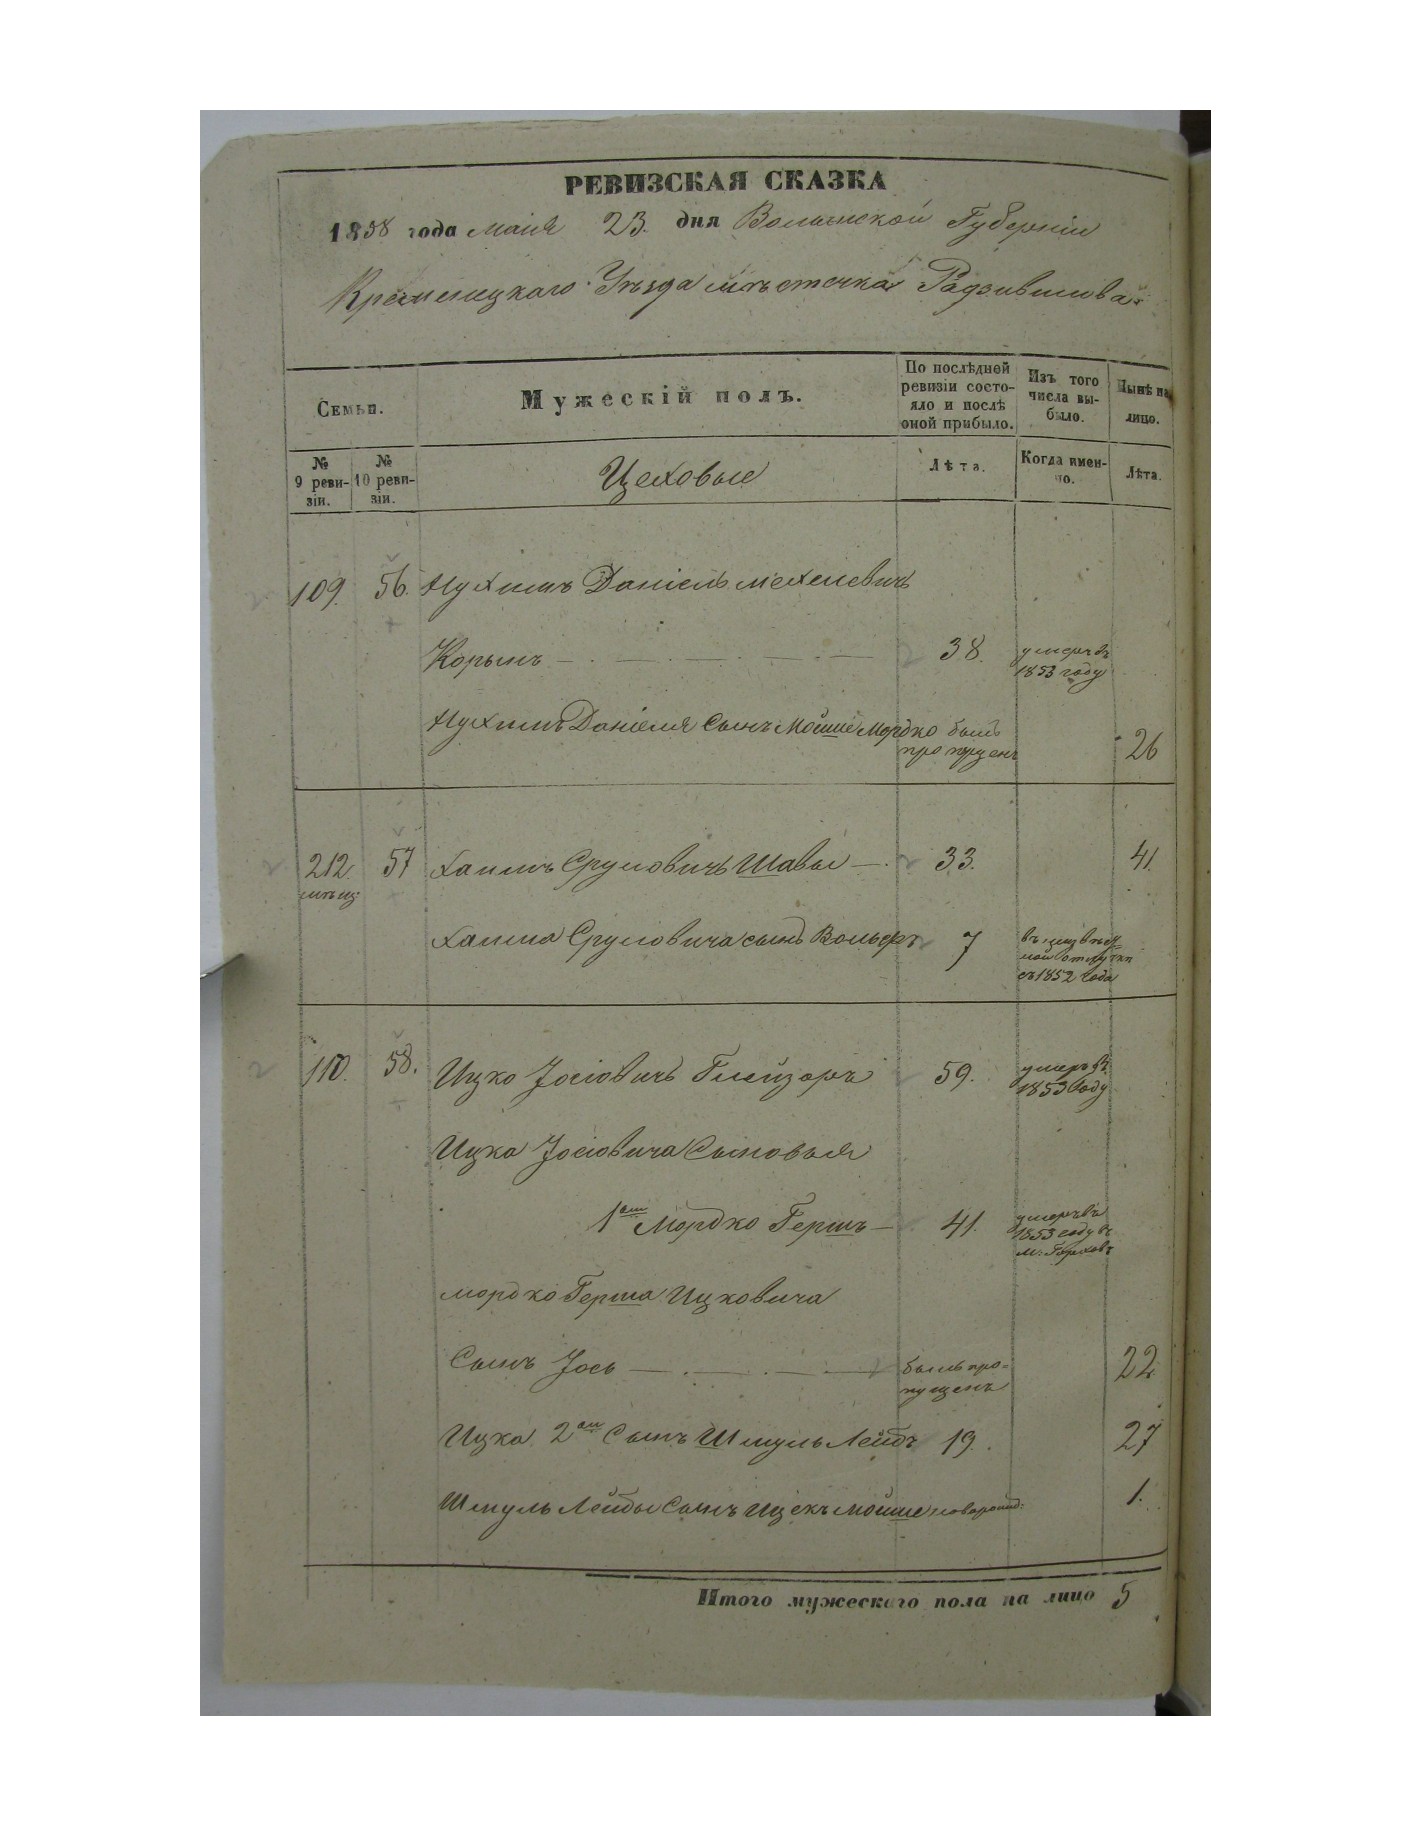 РЕВИЗСКАЯ СКАЗКА
1858 года маія 23. дня Волынской Губерніи
Кременецкаго Уѣзда мѣстечка Радзивилова
Семьи.
Мужескій полъ.
По послѣдней ревизіи состояло и послѣ оной прибыло.
Изъ того числа выбыло.
Нынѣ на лицо.
№ 9 ревизіи.
№ 10 ревизіи.
Цеховые
Лѣта.
Когда именно.
Лѣта.
109. 56. Нухимъ Даніель Мехелевичъ
Корынъ 38. умеръ въ 1853 году
Нухимъ Даніеля сынъ Мойше Мордко былъ пропущенъ 26
212. мѣщ: 57 Хаимъ Сруловичъ Шавы 33. 41.
Хаима Сруловича сынъ Вольфъ 7 въ неизвѣстной отлучки съ 1852 года
110. 58. Ицко Іосіовичъ Глейзоръ 59. умеръ въ 1853 году
Ицка Іосіовича Сыновья
1ый Мордко Гершъ 41. умеръ въ 1853 году въ м:
Мордко Герша Ицковича
Сынъ Іось былъ пропущенъ 22
Ицка 2ой Сынъ Шмуль Лейбъ 19. 27
Шмуль Лейбы Сынъ Ицекъ Мойше новорожд: 1.
Итого мужескаго пола на лицо 5